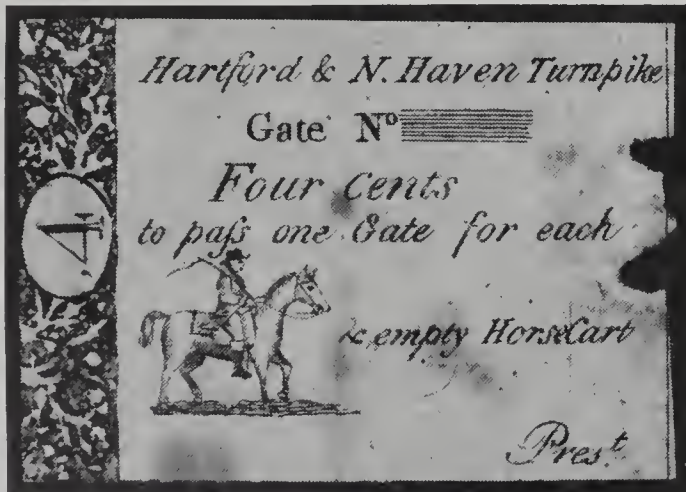 4
Hartford & N. Haven Turnpike
Gate Nº
Four cents
to paſs one Gate for each
& empty HorseCart
Pres.t